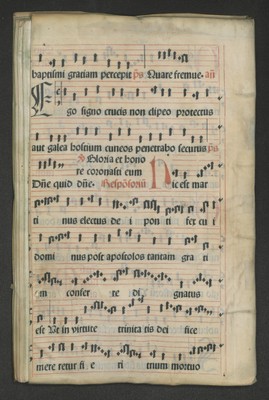 baptismi gratiam percepit ps Quare fremue. an
Ego signo crucis non clipeo protectus
aut galea hostium cuneos penetrabo securus ps
Gloria et hono
re coronasti eum
Dñe quid dñe. Responsoriũ Hic est mar
ti nus electus de i pon ti fex cu
domi nus post apostolos tantam gra ti
am confer re di gnatus
est Ut in virtute trinita tis dei fice
mere retur fi e ri trium mortuo